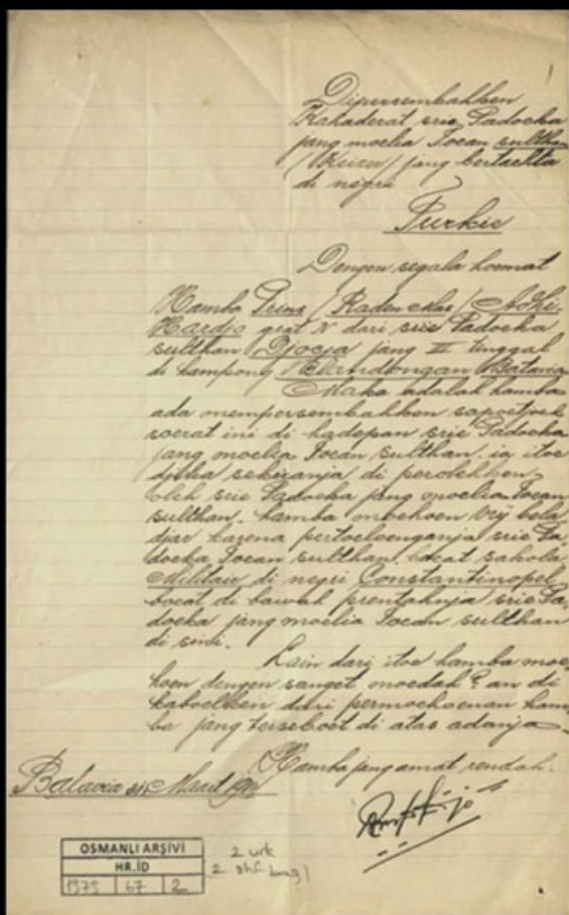 1
Dipersembahken
Kahaderat srie Padoeka
jang moelia Toean sulthan
(Keizer) jang bertachta
di negri
Turkie
Dengen segala hoemat
Hamba Prins (Raden Mas) Adhi-
Hardjo grat N dari srie Padoeka
sulthan Djocja jang III tinggal
di kampong Blandongan Batavia
Maka adalah hamba
ada mempersembahken sapoetjoek
soerat ini di hadepan srie Padoeka
jang moelia Toean sulthan. ia itoe
djika sekiranja di perolehken
oleh srie Padoeka jang moelia Toean
sulthan. hamba moehoen vrij bela
djar karena pertoeloenganja srie Pa,
doeka Toean sulthan. boeat sahola
Militair di negri Constantinopel
boeat di bawah prentahnja srie Pa,
doeka jang moelia Toean sulthan
di sini.
Lain dari itoe hamba moe
hoen dengen sanget moedah2 an di
kaboelken dari permoehoenan ham
ba jang terseboet di atas adanja
Hamba jang amat rendah.
Batavia Maart
OSMANLI ARŞİVİ
HR.İD
1979 67 2
2 vrk
2 shf